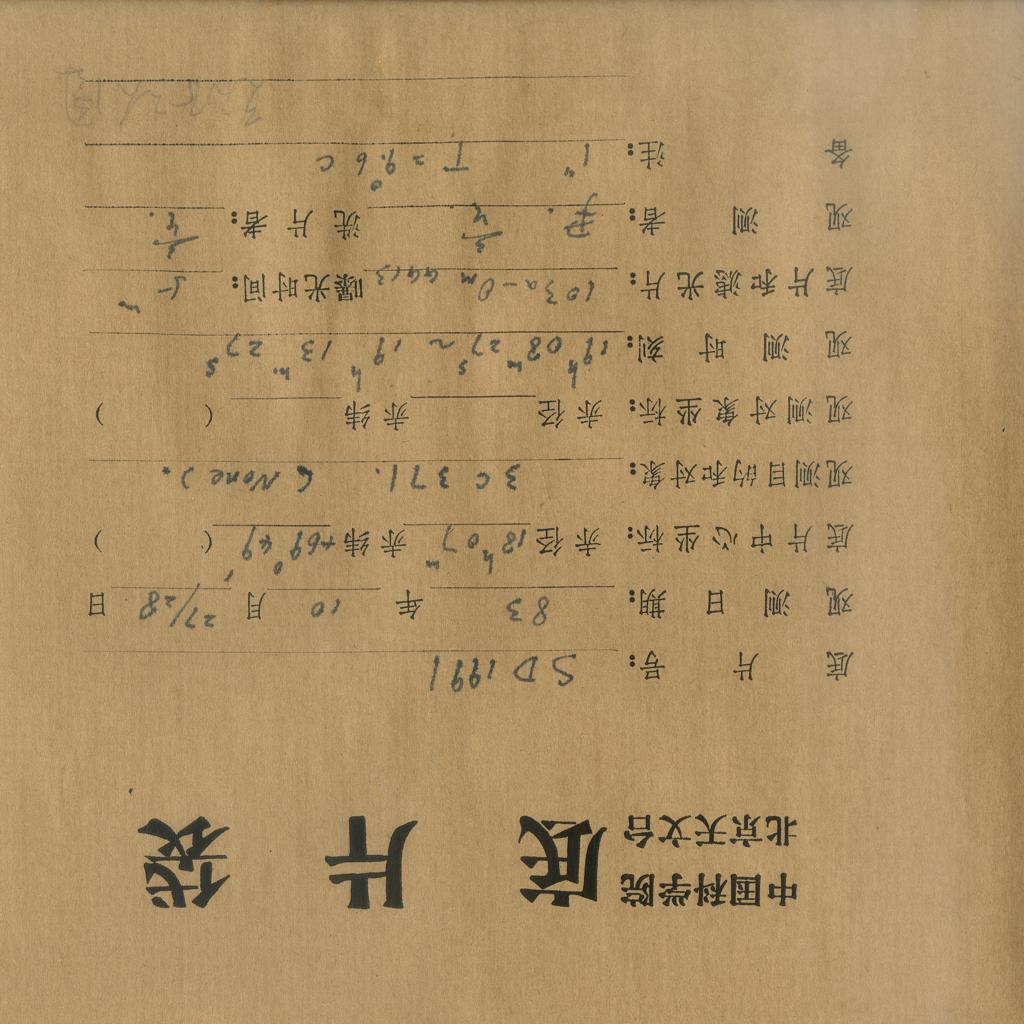 中国科学院
北京天文台
底片袋
底片号: SD 1991
观测日期: 83 年 10 月 27/28 日
底片中心坐标: 赤径 18ʰ07ᵐ 赤纬 +69°49′ ( )
观测目的和对象: 3C371. (None).
观测对象坐标: 赤径 赤纬 ( )
观测时刻: 19ʰ08ᵐ27ˢ ~ 19ʰ13ᵐ27ˢ
底片和滤光片: 103a-O 曝光时间: 5ᵐ
观测者: 洗片者:
备注: 1″ T=9.6°C